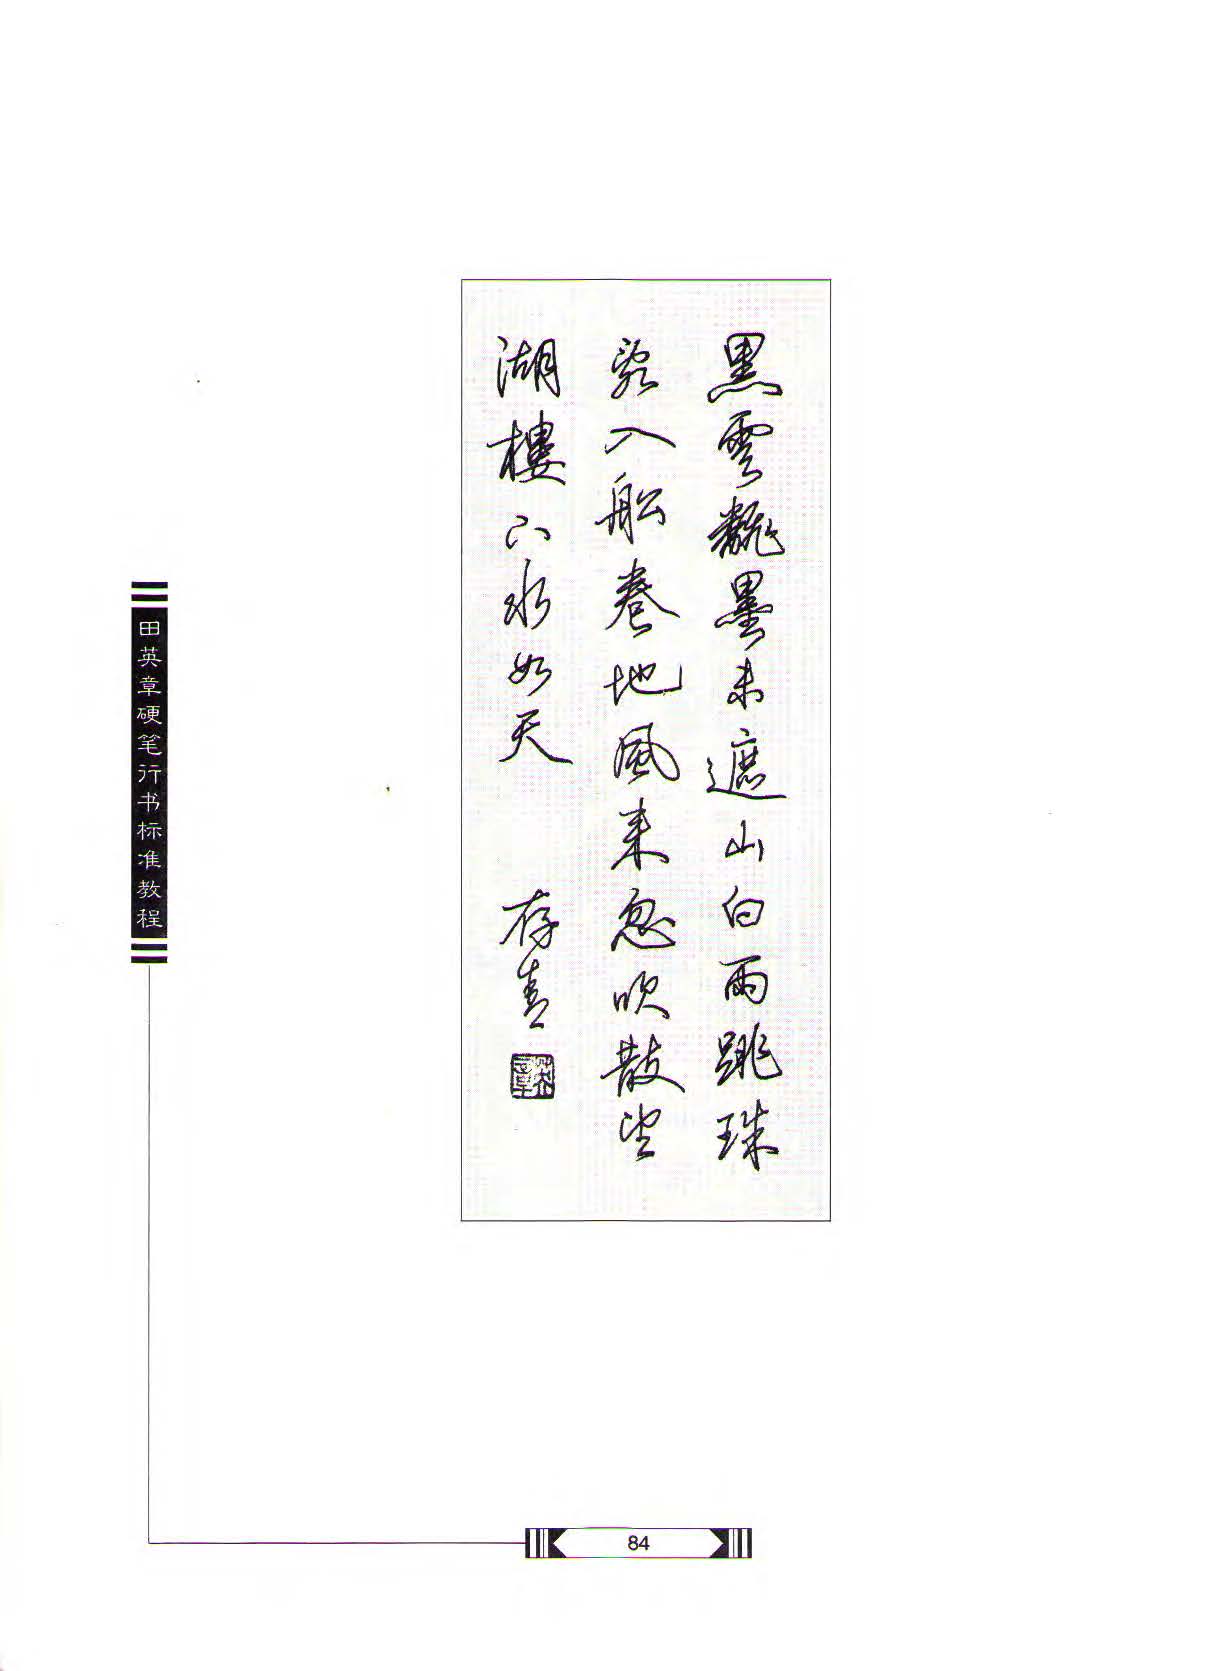 黑雲翻墨未遮山白雨跳珠
亂入船卷地風來忽吹散望
湖樓下水如天
存青
田英章硬笔行书标准教程
84